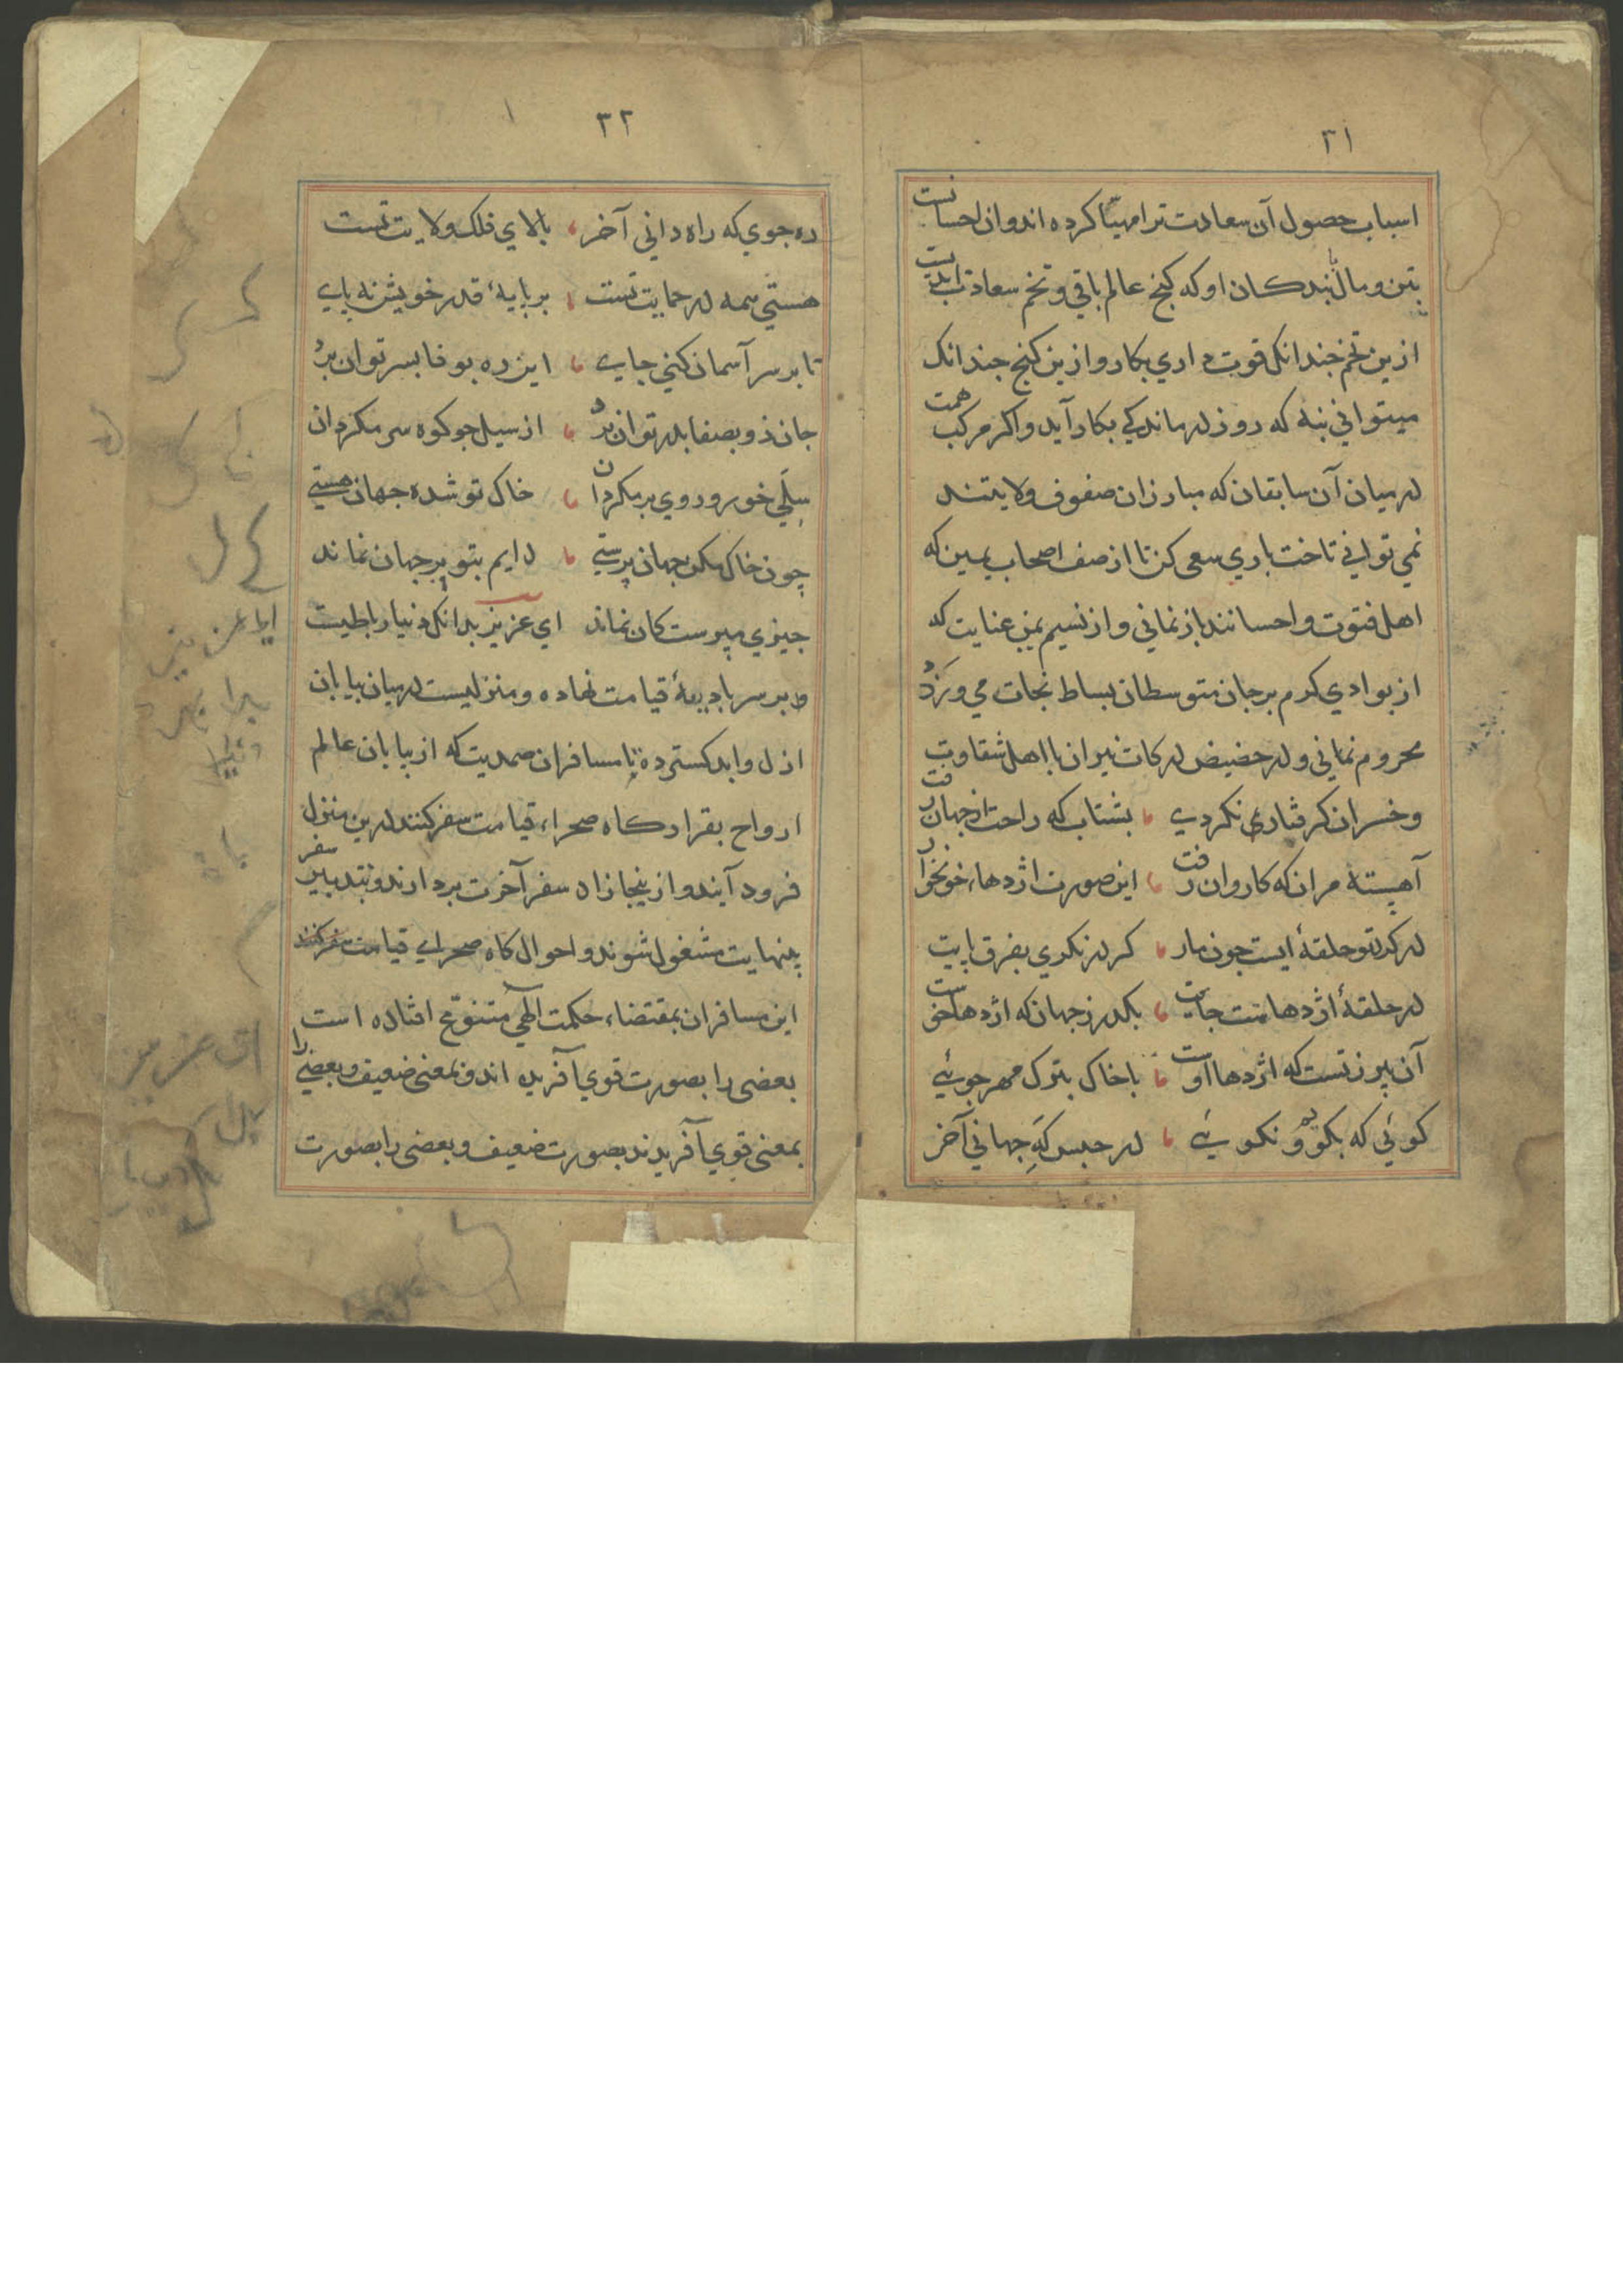 ۳۱
اسباب حصول آن سعادت ترا مهیّا کرده اند و ان احسانست
بتن و مال با بندکان او که کنج عالم باقی و تخم سعادت ابدیست
ازین تخم چندانک قوت داری بکار و ازین کنج چندانک
میتوانی بنه که روز درماندکی بکار آید و اکر مرکب همت
در میان آن سابقان که مبارزان صفوف ولایتند
نمی توانی تاخت باری سعی کن تا از صف اصحاب یمین که
اهل فتوت و احسانند باز نمانی و از نسیم یمن عنایت که
از بوادی کرم بر جان متوسطان بساط نجات می وزد
محروم نمانی و در حضیض درکات نیران با اهل شقاوت
و خسران کرفتار نکردی ، بشتاب که راحت از جهان رفت
آهسته مران که کاروان رفت ، این صورت اژدهاء خونخوار
در کرد تو حلقهٔ ایست جون مار ، کر در نکری بفرق پایت
در حلقهٔ اژدهاست جایت ، بکدر ز جهان که اژدها خوست
آن پیر زنست که اژدها اوست ، با خاک بترک مهر جوئی
کوئی که بکو و نکوئی ، در حبس که جهانی آخر
۳۲
ره جوی که راه دانی آخر ، بالای فلک ولایت تست
هستی همه در حمایت تست ، بر پایهٔ قدر خویش نه پای
تا بر سر آسمان کنی جای ، این ره بوفا بسر توان برد
جان ذو بصفا بدر توان برد ، از سیل جو کوه سر مکردان
سیلی خور و روی بر مکردان ، خاک تو شده جهان هستی
چون خاک مکن جهان پرستی ، دایم بتو بر جهان نماند
جیزی مپرست کان نماند ای عزیز بدانک دنیا رباطیست
بر سر بادیهٔ قیامت نهاده و منزلیست در میان بیابان
ازل و ابد کسترده تا مسافران صمدیت که از بیابان عالم
ارواح بقرارکاه صحراء قیامت سفر کنند درین منزل
فرود آیند و از ینجا زاد سفر آخرت بردارند و بتدبیر سفر
بنهایت مشغول شوند و احوال کاه صحرای قیامت سفر کنند
این مسافران بمقتضاء حکمت الهی متنوّع افتاده است
بعضی را بصورت قوی آفریده اند و بمعنی ضعیف و بعضی را
بمعنی قوی آفریدند بصورت ضعیف و بعضی را بصورت